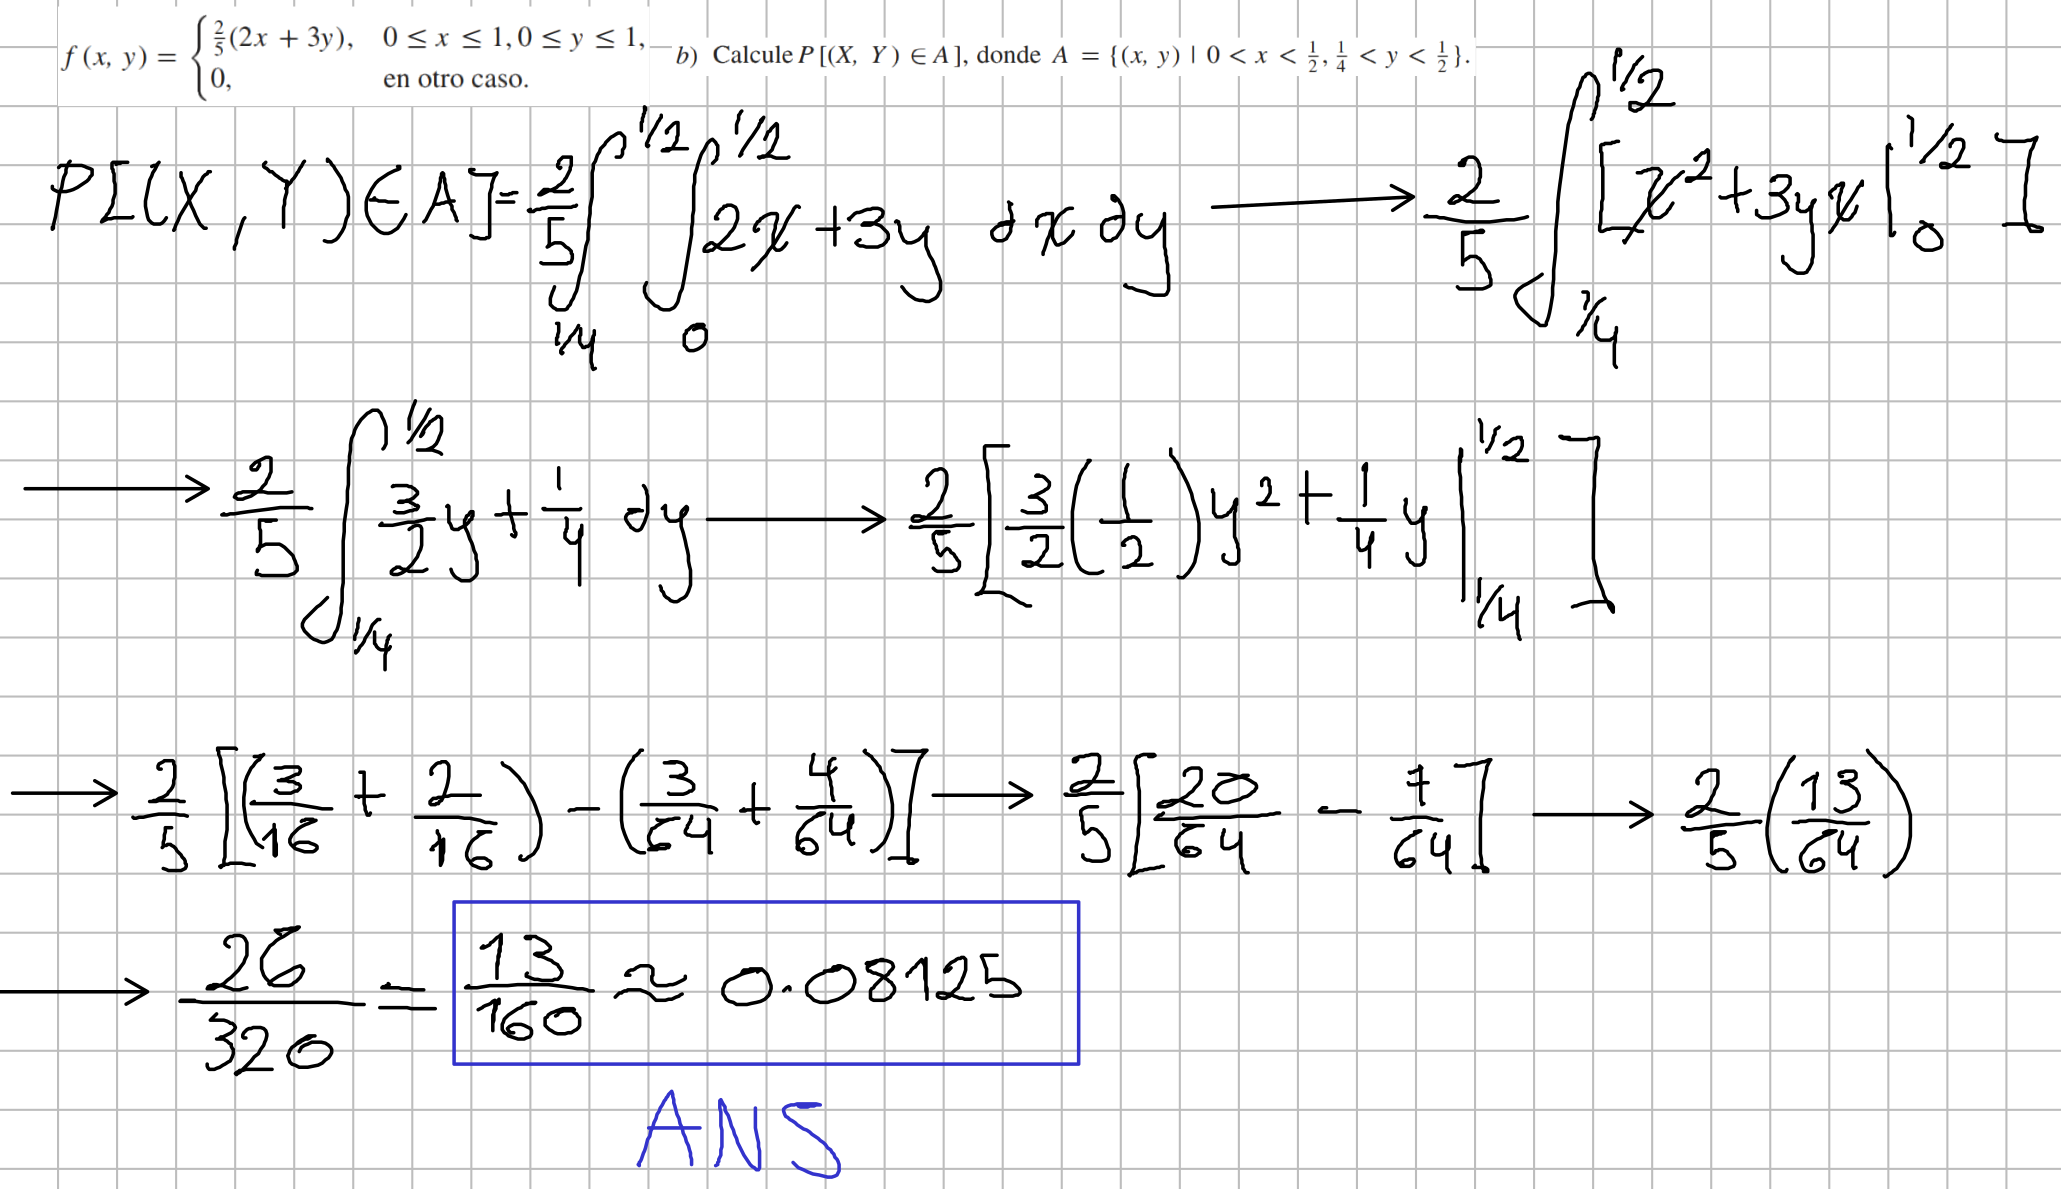 f (x, y) = { 2/5(2x + 3y), 0 ≤ x ≤ 1, 0 ≤ y ≤ 1,
0, en otro caso.
b) Calcule P [(X, Y) ∈ A], donde A = {(x, y) | 0 < x < 1/2, 1/4 < y < 1/2}.
P[(X,Y)∈A]= 2/5 ∫_{1/4}^{1/2} ∫_0^{1/2} 2x+3y dx dy ⟶ 2/5 ∫_{1/4}^{1/2} [x²+3yx |_0^{1/2}]
⟶ 2/5 ∫_{1/4}^{1/2} 3/2 y + 1/4 dy ⟶ 2/5 [3/2 (1/2) y² + 1/4 y |_{1/4}^{1/2}]
⟶ 2/5 [(3/16 + 2/16) − (3/64 + 4/64)] ⟶ 2/5 [20/64 − 7/64] ⟶ 2/5 (13/64)
⟶ 26/320 = 13/160 ≈ 0.08125
ANS